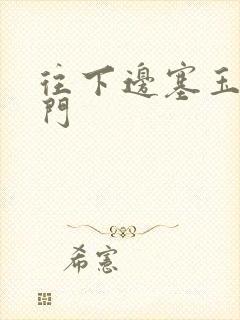 往下邊塞玉
門
希憲